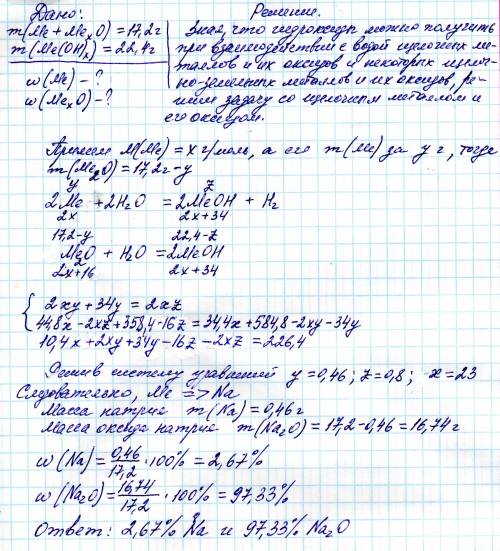 Дано:
m(Me + MeₓO) = 17,2г
m(Me(OH)ₓ) = 22,4г
ω(Me) - ?
ω(MeₓO) - ?
Решение.
Зная, что гидроксиды можно получить
при взаимодействии с водой щелочных ме-
таллов и их оксидов и некоторых щелоч-
но-земельных металлов и их оксидов, ре-
шаем задачу со щелочным металлом и
его оксидом.
Примем M(Me) = x г/моль, а его m(Me) за y г, тогда
m(Me₂O) = 17,2г - y
y z
2Me + 2H₂O = 2MeOH + H₂
2x 2x+34
17,2-y 22,4-z
Me₂O + H₂O = 2MeOH
2x+16 2x+34
{ 2xy + 34y = 2xz
44,8x - 2xz + 358,4 - 16z = 34,4x + 584,8 - 2xy - 34y
10,4x + 2xy + 34y - 16z - 2xz = 226,4
Решив систему уравнений y = 0,46; z = 0,8; x = 23
Следовательно, Me => Na
Масса натрия m(Na) = 0,46г
Масса оксида натрия m(Na₂O) = 17,2 - 0,46 = 16,74г
ω(Na) = 0,46/17,2 · 100% = 2,67%
ω(Na₂O) = 16,74/17,2 · 100% = 97,33%
Ответ: 2,67% Na и 97,33% Na₂O